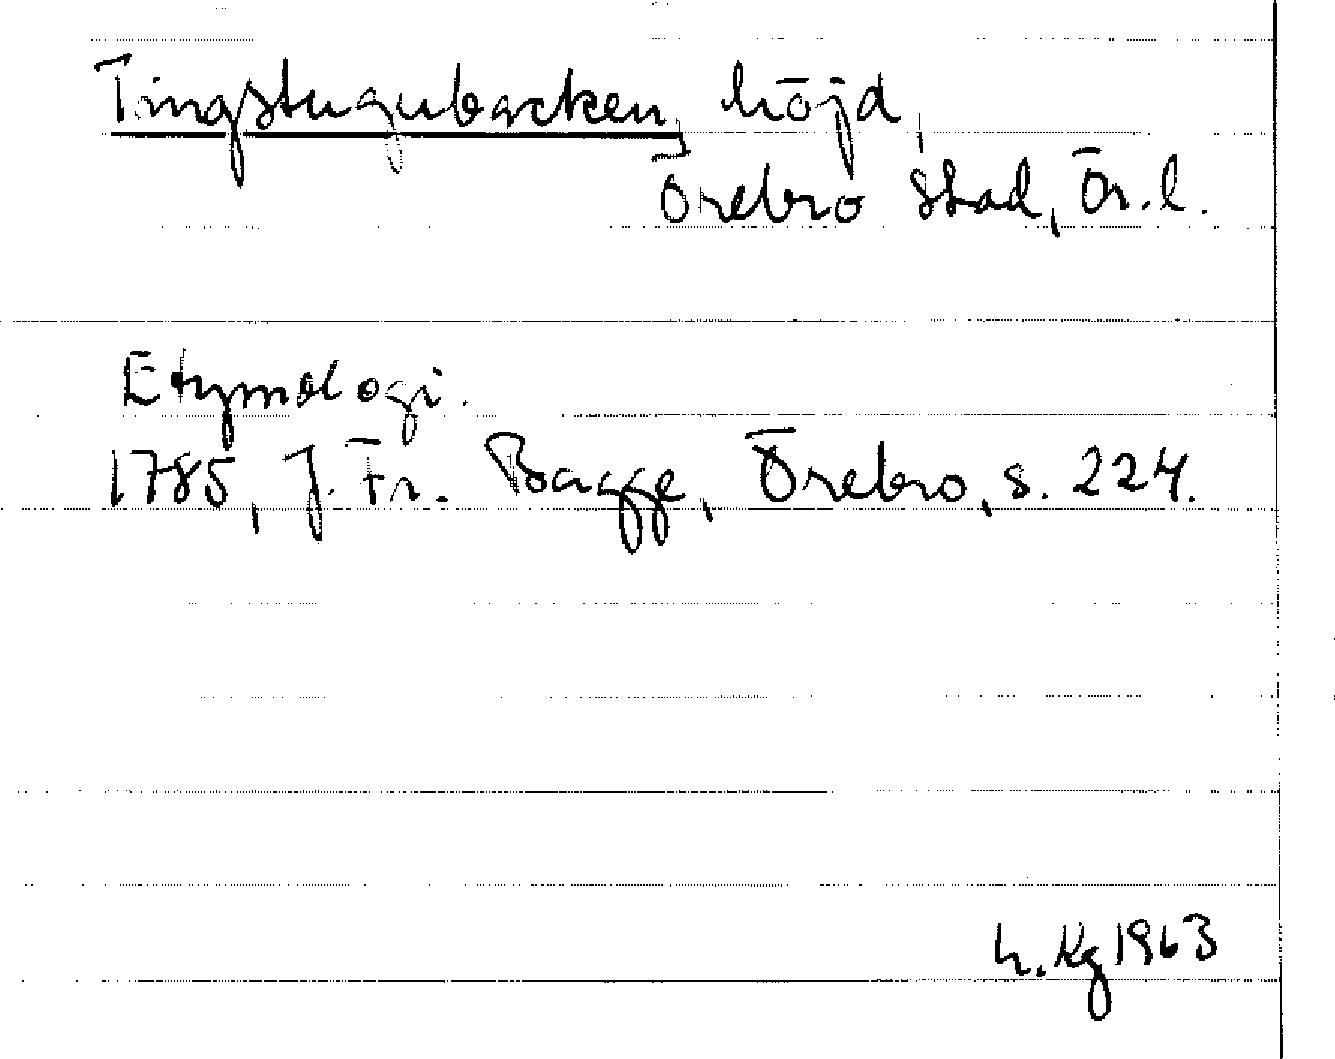 Tingstugubacken, höjd,
Örebro stad, Ör.l.
Etymologi.
1785, J. Fr. Bagge, Örebro, s. 224.
h. Kg 1963